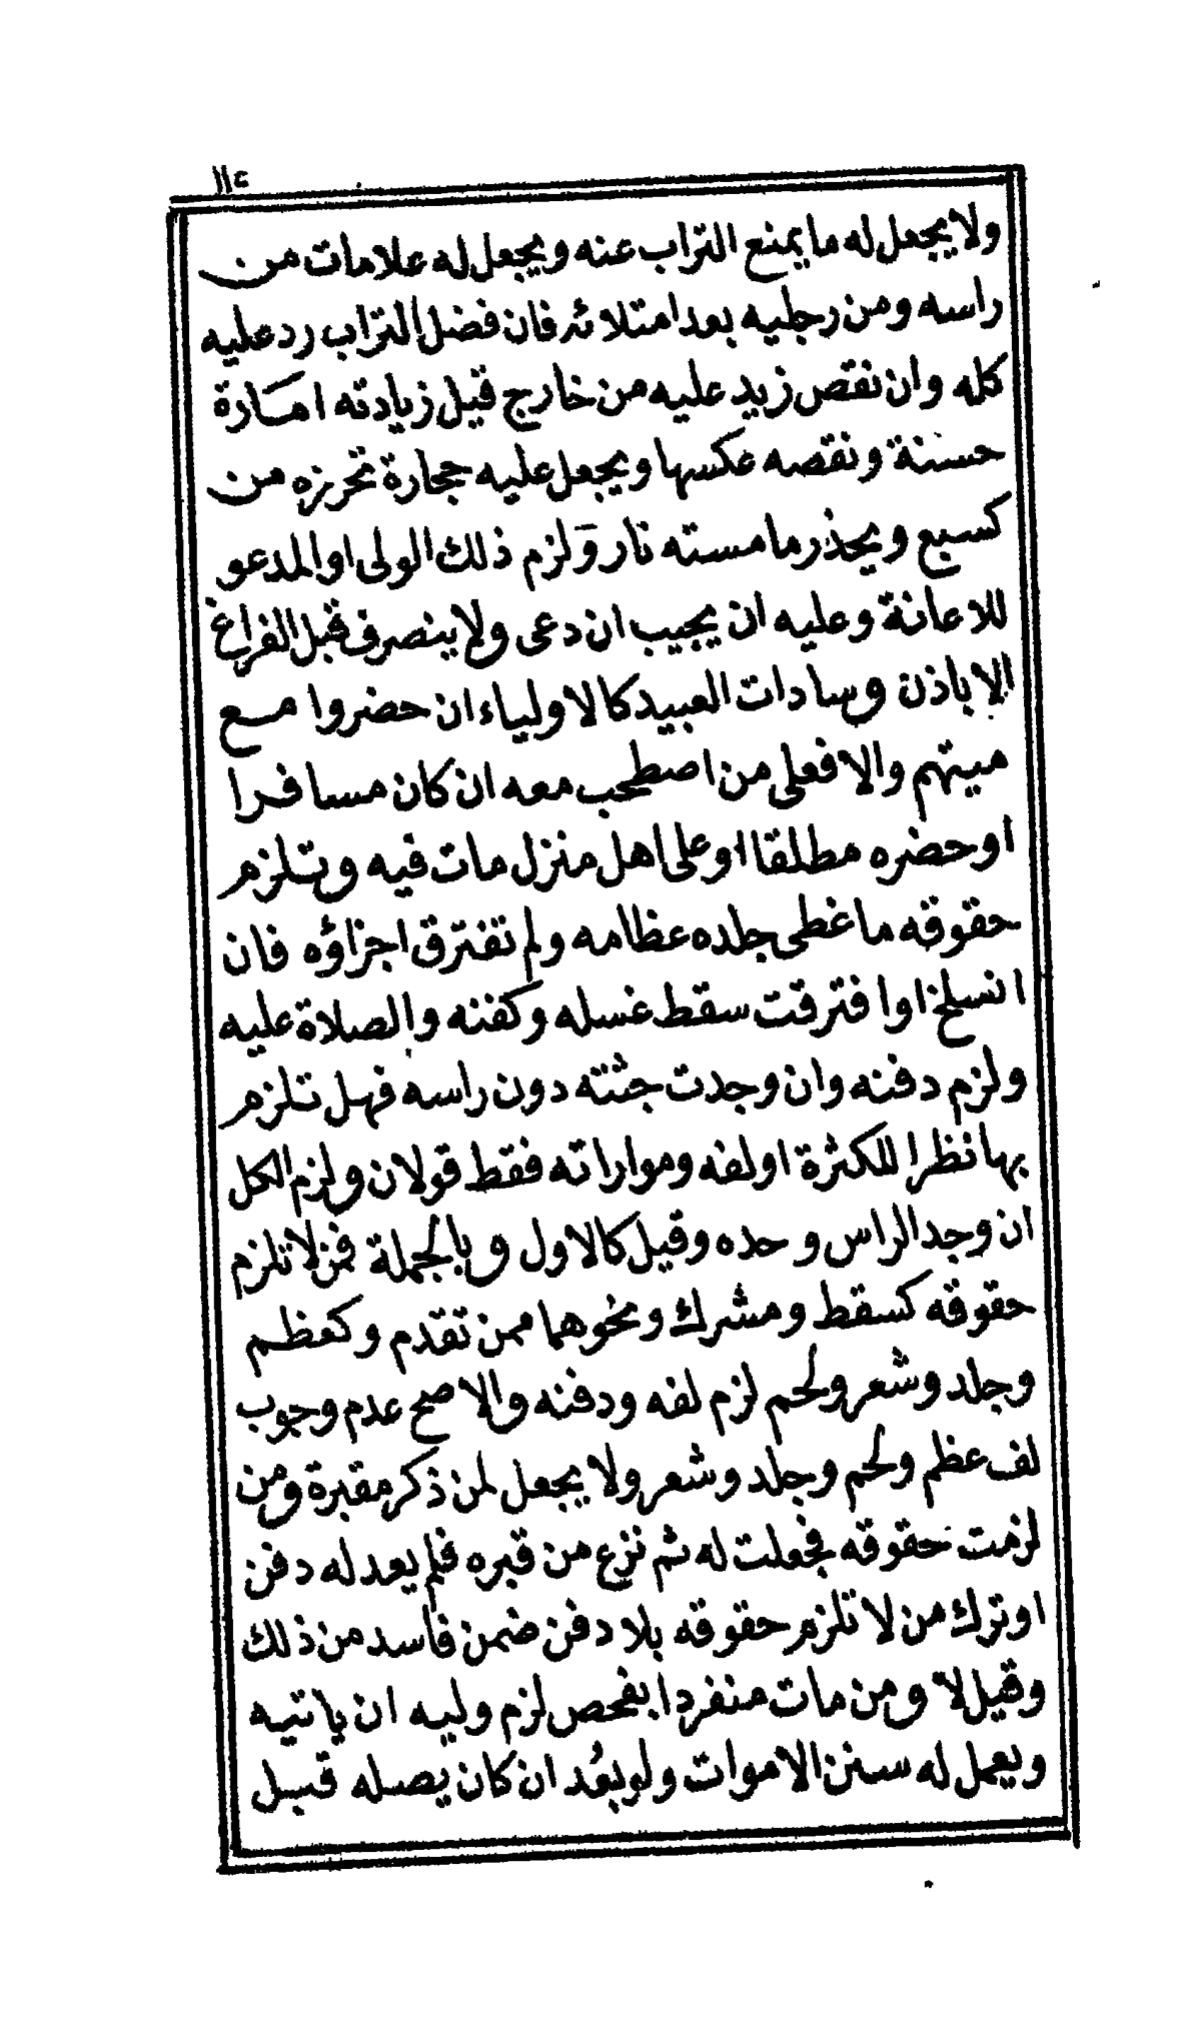 ١١٢
ولا يجعل له ما يمنع التراب عنه ويجعل له علامات من
راسه ومن رجليه بعد امتلائه فان فضل التراب رد عليه
كله وان نقص زيد عليه من خارج قيل زيادته امارة
حسنة ونقصه عكسها ويجعل عليه حجارة تحرزه من
كسبع ويحذر ما مسته نار ولزم ذلك الولى او المدعو
للاعانة وعليه ان يجيب ان دعى ولا ينصرف قبل الفراغ
الا باذن وسادات العبيد كالاولياء ان حضروا مع
ميتهم والا فعلى من اصطحب معه ان كان مسافرا
او حضره مطلقا او على اهل منزل مات فيه وتلزم
حقوقه ما غطى جلده عظامه ولم تفترق اجزاؤه فان
انسلخ او افترقت سقط غسله وكفنه والصلاة عليه
ولزم دفنه وان وجدت جثته دون راسه فهل تلزم
بها نظرا للكثرة او لفه ومواراته فقط قولان ولزم الكل
ان وجد الراس وحده وقيل كالاول وبالجملة فمن لا تلزم
حقوقه كسقط ومشرك ونحوهما ممن تقدم وكعظم
وجلد وشعر ولحم لزم لفه ودفنه والاصح عدم وجوب
لف عظم ولحم وجلد وشعر ولا يجعل لمن ذكر مقبرة ومن
لزمت حقوقه فجعلت له ثم نزع من قبره فلم يعد له دفن
او ترك من لا تلزم حقوقه بلا دفن ضمن فاسد من ذلك
وقيل لا ومن مات منفردا بفحص لزم وليه ان ياتيه
ويعمل له سنن الاموات ولو بعُد ان كان يصله قبل